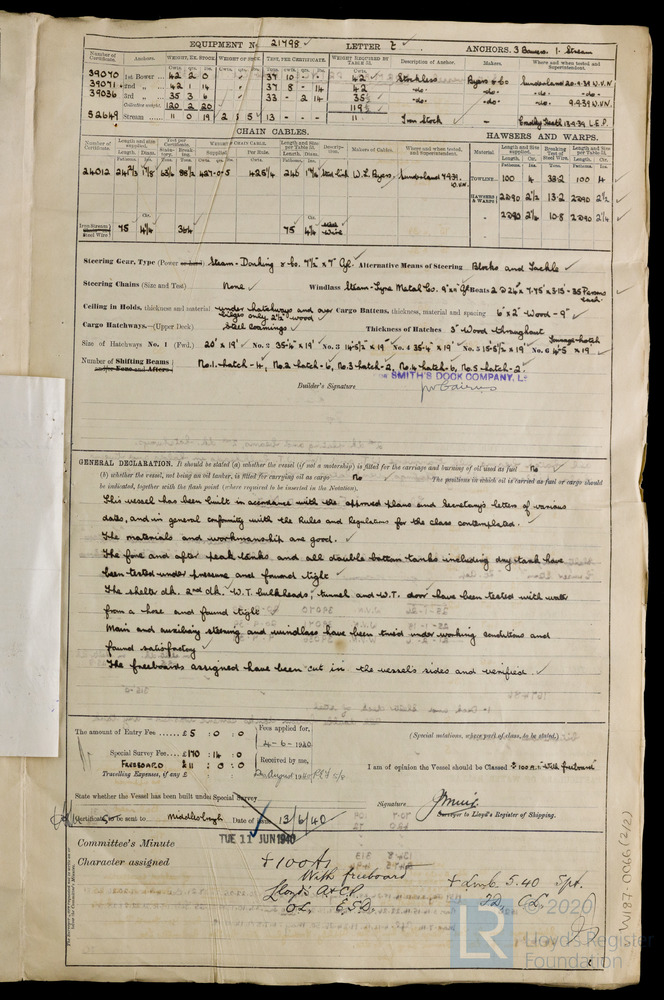 EQUIPMENT No 21498 LETTER Z ANCHORS. 3 Bowers. 1 Stream
Number of Certificate. Anchors. WEIGHT, EX. STOCK. WEIGHT OF STOCK. TEST, PER CERTIFICATE. WEIGHT REQUIRED BY TABLE 31. Description of Anchor. Makers. Where and when tested and Superintendent.
39070 1st Bower ... 42 2 0 37 10 - - 42 Stockless Byers & Co Sunderland 20.9.39 W.V.N.
39071 2nd " ... 42 1 14 37 8 - 14 42 -do- -do- -do- -do-
39036 3rd " ... 35 3 6 33 - 2 14 35½ -do- -do- -do- 9.9.39 W.V.N.
Collective weight. 120 2 20 119½
52649 Stream ...... 11 0 19 2 3 5 13 - - - 11 Iron Stock - Cradley Heath 13.9.39 L.E.P.
CHAIN CABLES. HAWSERS AND WARPS.
Number of Certificate. Length and size supplied. Test per Certificate. WEIGHT OF CHAIN CABLE. Length and Size per Table 31. Description. Makers of Cables. Where and when tested, and Superintendent. Material. Length and Size supplied. Breaking Test of Steel Wire. Length and Size per Table 31.
Length. Diam. Supplied. Per Rule. Length. Diam. Length. Cir.
TOWLINE 100 4 33.2 100 4
HAWSERS & WARPS 2@90 2½ 13.2 2@90 2½
2@90 2¼ 10.8 2@90 2¼
Iron Stream or Steel Wire 75 4¼ 36.4 75 4¼ Wire
Steering Gear, Type (Power or hand) Steam - Donking & Co. 7½" x 7" Cyl. Alternative Means of Steering Blocks and Tackle
Steering Chains (Size and Test) None Windlass Steam - Tyne Metal Co. 9" x 9" Cyl Boats 2 @ 26' x 7.75' x 3.15' - 35 Persons each.
Ceiling in Holds, thickness and material under hatchways and over bilges only 2½" wood Cargo Battens, thickness, material and spacing 6" x 2" Wood - 9"
Cargo Hatchways.—(Upper Deck) Steel Coamings Thickness of Hatches 3" Wood throughout
Size of Hatchways No. 1 (Fwd.) 20' x 19' No. 2 35'-4" x 19' No. 3 14'-5½" x 19' No. 4 35'-4" x 19' No. 5 15'-5½" x 19' No. 6 4'-5" x 19' Tonnage hatch
Number of Shifting Beams No. 1 hatch - 4, No. 2 hatch - 6, No. 3 hatch - 2, No. 4 hatch - 6, No. 5 hatch - 2.
and/or Fore and Afters
SMITH'S DOCK COMPANY, Ld
Builder's Signature
GENERAL DECLARATION. It should be stated (a) whether the vessel (if not a motorship) is fitted for the carriage and burning of oil used as fuel No
(b) whether the vessel, not being an oil tanker, is fitted for carrying oil as cargo No The positions in which oil is carried as fuel or cargo should
be indicated, together with the flash point (where required to be inserted in the Notation).
This vessel has been built in accordance with the approved plans and Secretary's letters of various
dates, and in general conformity with the Rules and Regulations for the class contemplated.
The materials and workmanship are good.
The fore and after peak tanks and all double bottom tanks including day tank have
been tested under pressure and found tight
The shelter dk. 2nd dk. W.T. bulkheads, tunnel and W.T. door have been tested with water
from a hose and found tight
Main and auxiliary steering and windlass have been tried under working conditions and
found satisfactory
The freeboards assigned have been cut in the vessel's sides and verified.
The amount of Entry Fee ...... £5 : 0 : 0 Fees applied for,
4-6-1940 (Special notations, where part of class, to be stated.)
Special Survey Fee.... £170 : 14 : 0 Received by me,
FREEBOARD £11 : 0 : 0
Travelling Expenses, if any £ August 1940
I am of opinion the Vessel should be Classed + 100 A.1. "With freeboard"
State whether the Vessel has been built under Special Survey
Signature
Surveyor to Lloyd's Register of Shipping.
Certificate to be sent to Middlesbrough Date of issue 13/6/40
TUE 11 JUN 1940
Committee's Minute
Character assigned +100A1
With freeboard
Lloyd's A & CP.
+ LMC 5.40 Spt.
FD, CL.
W187-0066 (2/2)
LR © 2020
Lloyd's Register
Foundation